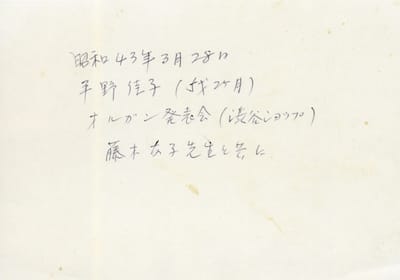 昭和43年3月28日
平野佳子(5才2ケ月)
オルガン発表会(渋谷ショップ)
藤木衣子先生と共に